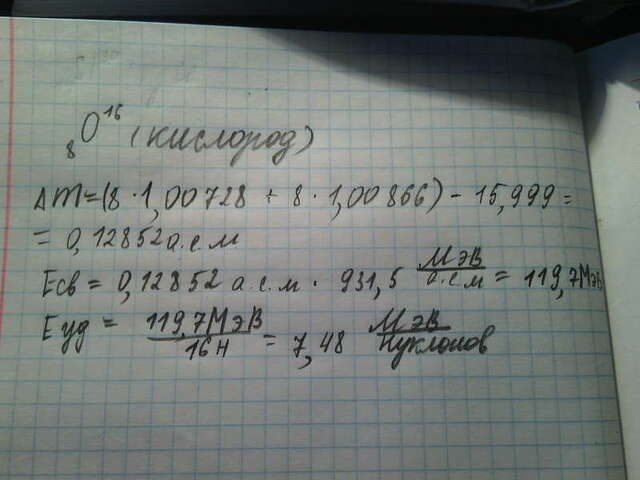 ₈O¹⁶ (кислород)
Δm=(8·1,00728 + 8·1,00866) - 15,999 =
= 0,12852 а.с.м
Eсв = 0,12852 а.с.м · 931,5 МэВ/а.с.м = 119,7МэВ
Eуд = 119,7МэВ/16н = 7,48 МэВ/нуклонов